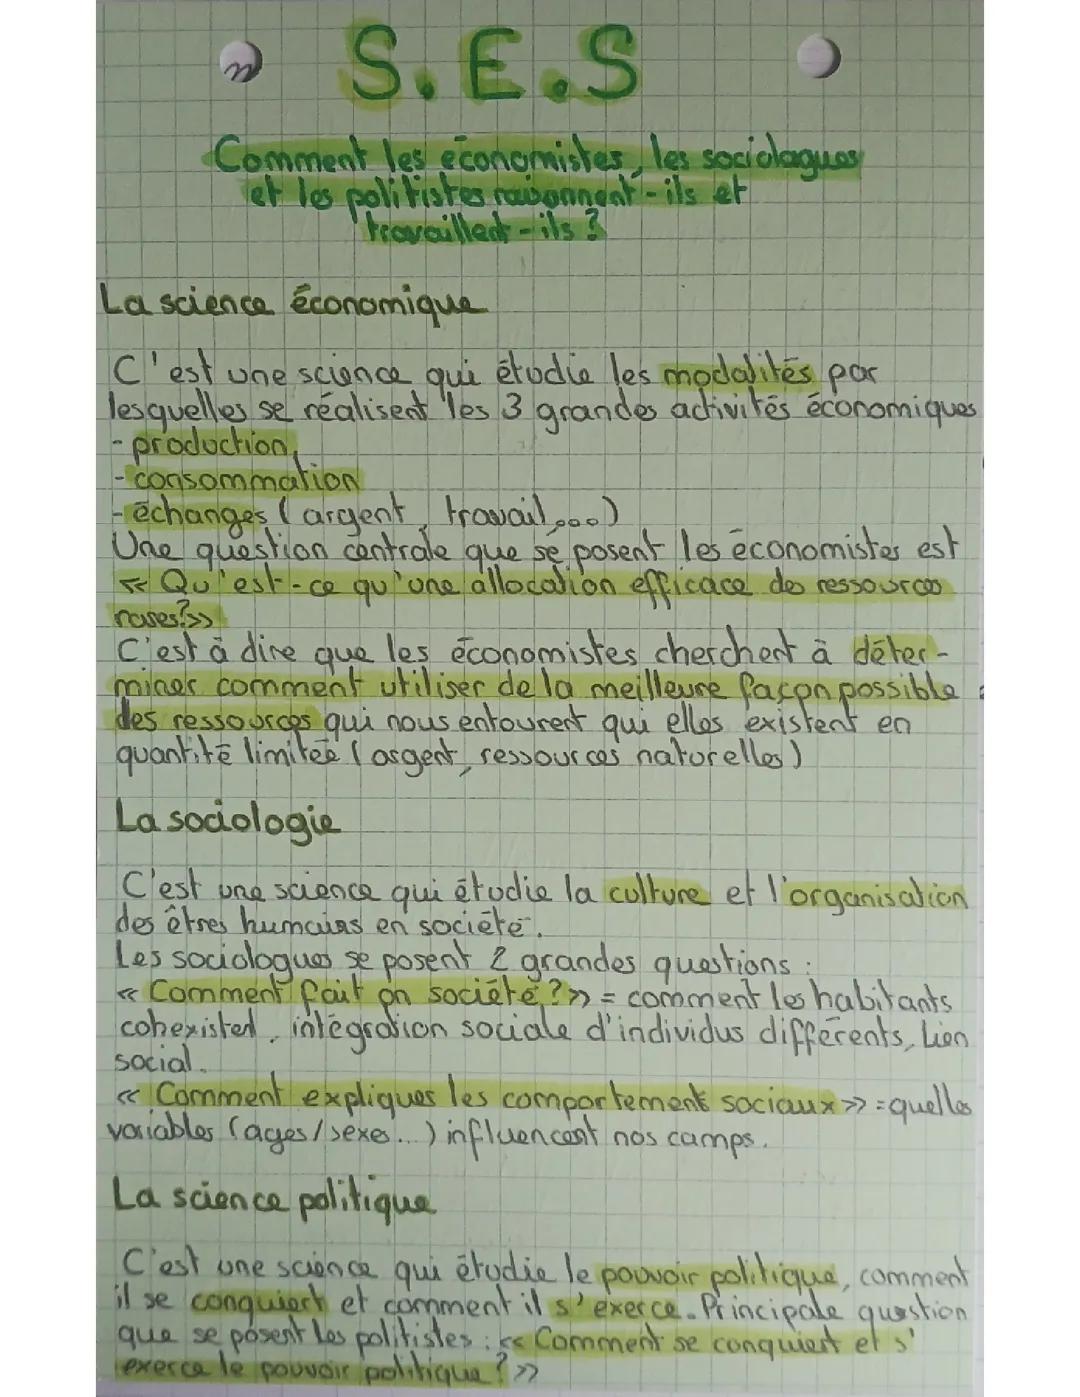 S.E.S
Comment les économistes, les sociologues
et les politistes raisonnent-ils et
travaillent-ils ?
La science économique
C'est une science qui étudie les modalités par
lesquelles se réalisent les 3 grandes activités économiques
- production,
- consommation
- échanges (argent, travail,...)
Une question centrale que se posent les économistes est
« Qu'est-ce qu'une allocation efficace des ressources
rares?»
C'est à dire que les économistes cherchent à déter-
miner comment utiliser de la meilleure façon possible
des ressources qui nous entourent qui elles existent en
quantité limitée (argent, ressources naturelles)
La sociologie
C'est une science qui étudie la culture et l'organisation
des êtres humains en société.
Les sociologues se posent 2 grandes questions :
« Comment fait on société ?» = comment les habitants
cohexistent, intégration sociale d'individus différents, Lien
social.
« Comment expliquer les comportements sociaux » = quelles
variables (ages/sexes...) influencent nos comps.
La science politique
C'est une science qui étudie le pouvoir politique, comment
il se conquiert et comment il s'exerce. Principale question
que se posent les politistes : « Comment se conquiert et s'
exerce le pouvoir politique ? »